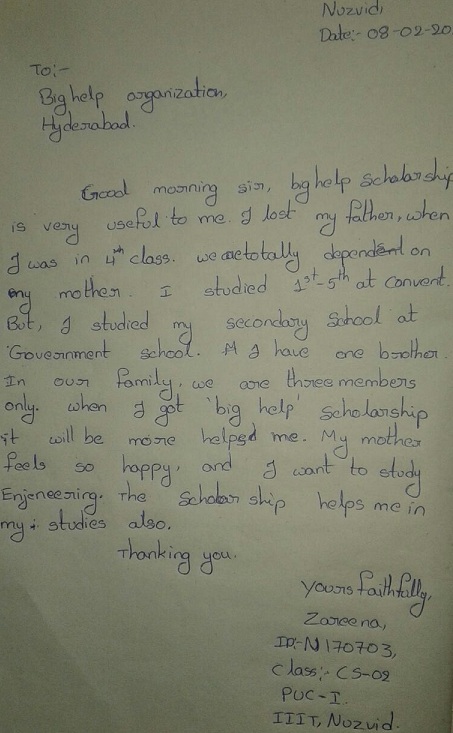 Nuzvid,
Date:- 08-02-20
To:-
Big help organization,
Hyderabad.
Good morning sir, big help Scholarship
is very useful to me. I lost my father, when
I was in 4th class. we are totally dependent on
my mother. I studied 1st-5th at Convent.
But, I studied my secondary School at
Government school. I have one brother.
In our family, we are three members
only. when I got 'big help' Scholarship
it will be more helped me. My mother
feels so happy, and I want to study
Enjeneering. The Scholar ship helps me in
my studies also.
Thanking you.
Yours faithfully,
Zareena,
ID:-N170703,
Class:- CS-02
PUC-I.
IIIT, Nuzvid.